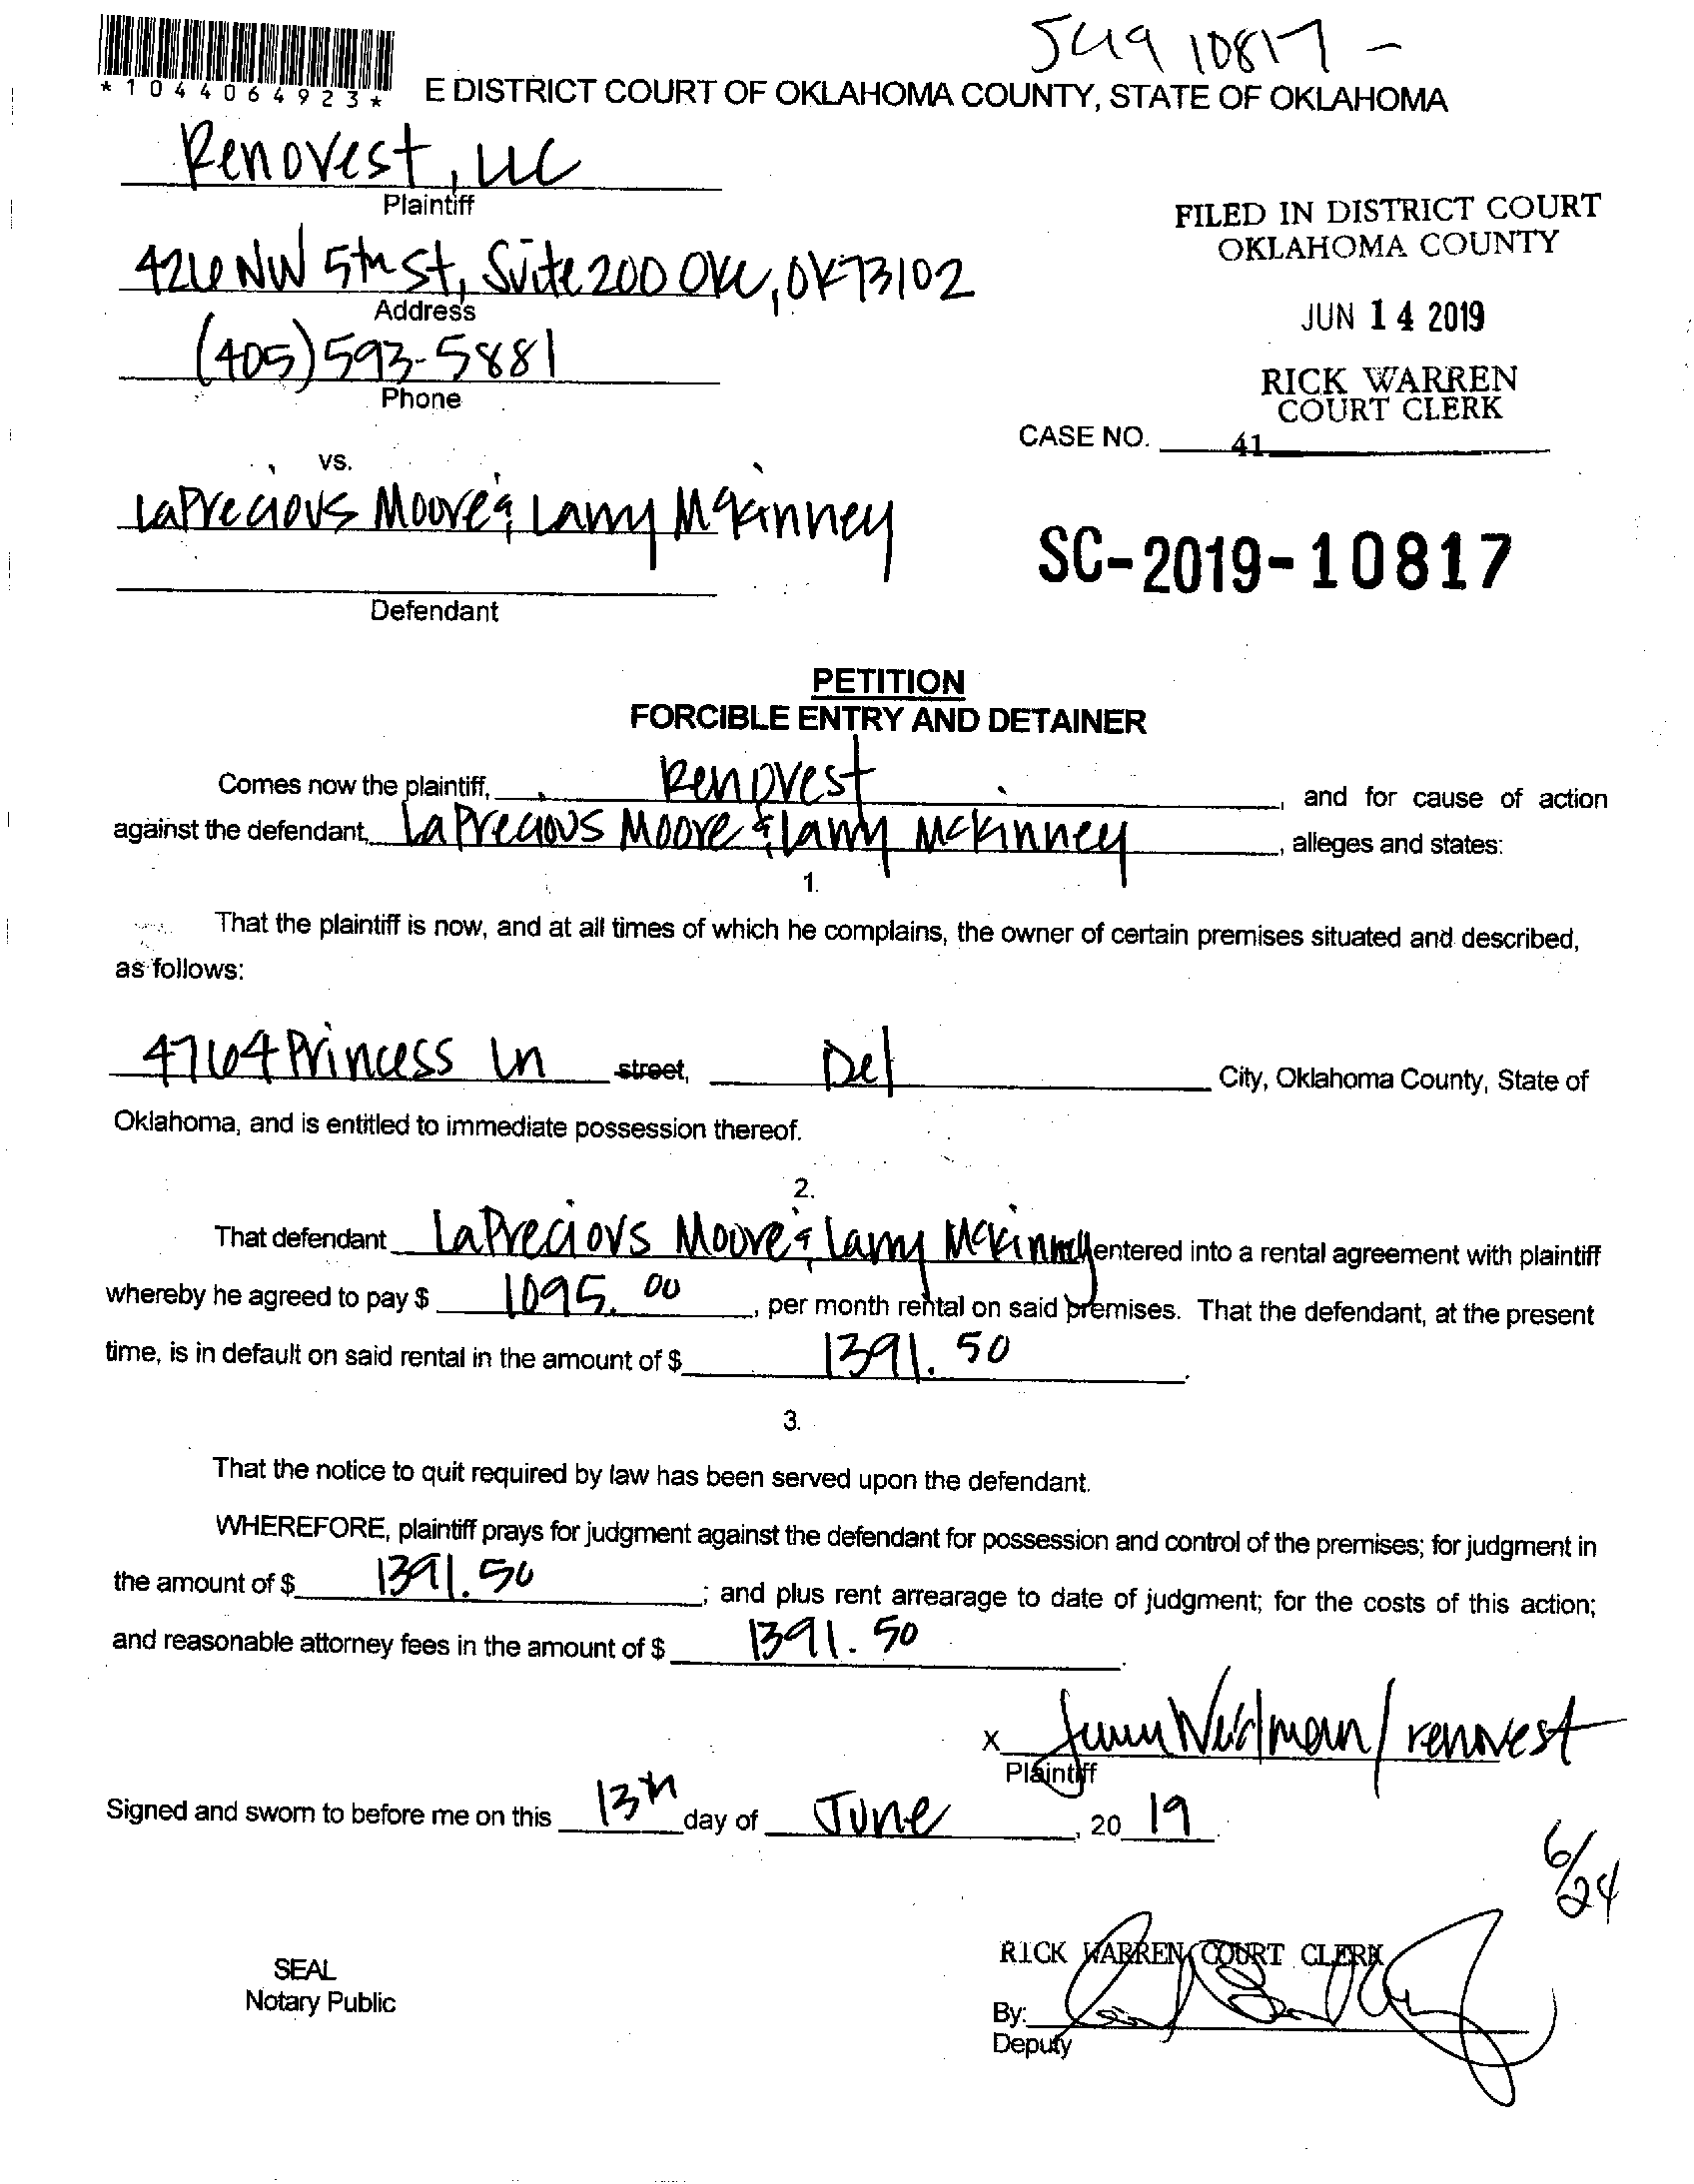 SC19 10817 -
*1044064923*
E DISTRICT COURT OF OKLAHOMA COUNTY, STATE OF OKLAHOMA
Renovest, LLC
Plaintiff
FILED IN DISTRICT COURT
OKLAHOMA COUNTY
426 NW 5th St, Suite 200 OKC, OK 73102
Address
JUN 14 2019
(405) 593-5881
Phone
RICK WARREN
COURT CLERK
CASE NO. 41
vs.
LaPrecious Moore & Larry McKinney
SC-2019-10817
Defendant
PETITION
FORCIBLE ENTRY AND DETAINER
Comes now the plaintiff, Renovest, and for cause of action
against the defendant, LaPrecious Moore & Larry McKinney, alleges and states:
1.
That the plaintiff is now, and at all times of which he complains, the owner of certain premises situated and described,
as follows:
4764 Princess Ln street, Del City, Oklahoma County, State of
Oklahoma, and is entitled to immediate possession thereof.
2.
That defendant LaPrecious Moore & Larry McKinney entered into a rental agreement with plaintiff
whereby he agreed to pay $ 1095.00, per month rental on said premises. That the defendant, at the present
time, is in default on said rental in the amount of $ 1391.50.
3.
That the notice to quit required by law has been served upon the defendant.
WHEREFORE, plaintiff prays for judgment against the defendant for possession and control of the premises; for judgment in
the amount of $ 1391.50; and plus rent arrearage to date of judgment; for the costs of this action;
and reasonable attorney fees in the amount of $ 1391.50.
x Weidman / renovest
Plaintiff
Signed and sworn to before me on this 13th day of June, 2019.
6/24
RICK WARREN COURT CLERK
SEAL
Notary Public
By:
Deputy